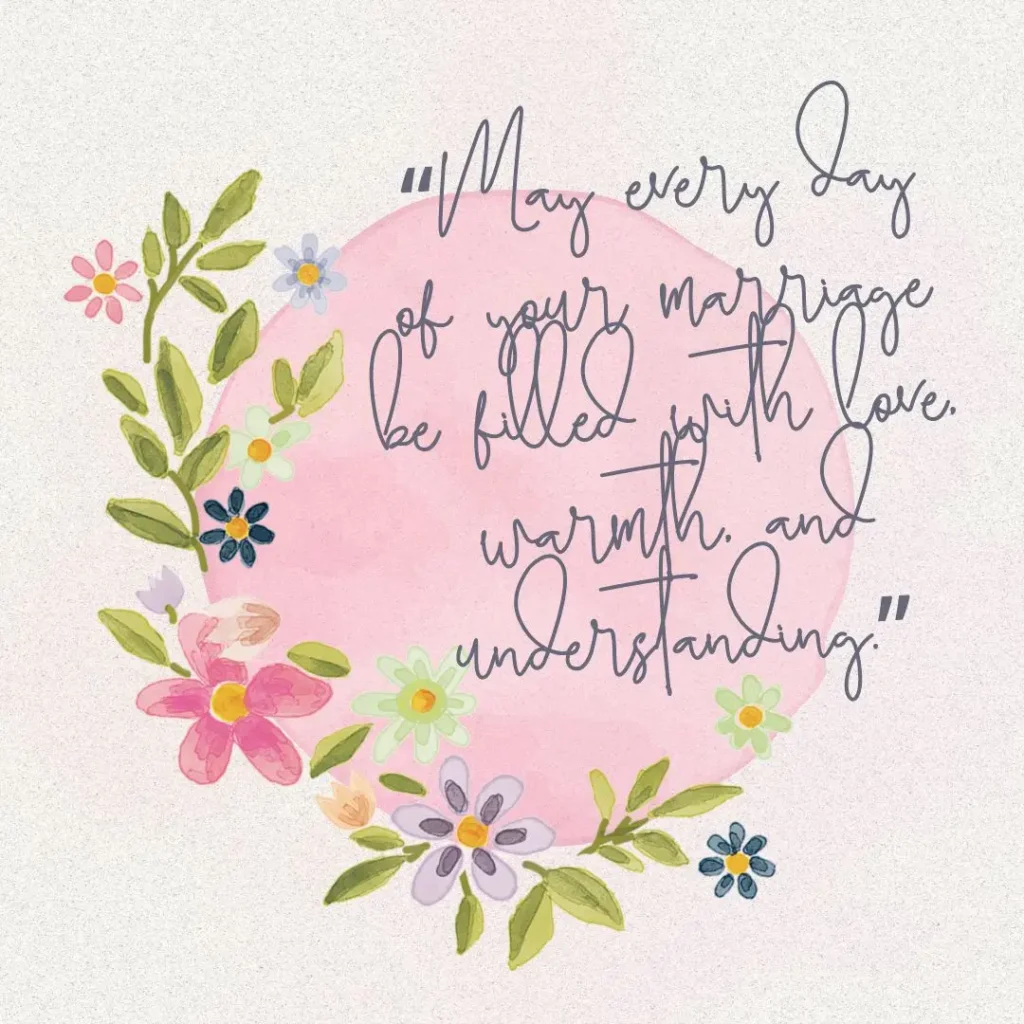 "May every day
of your marriage
be filled with love,
warmth, and
understanding."